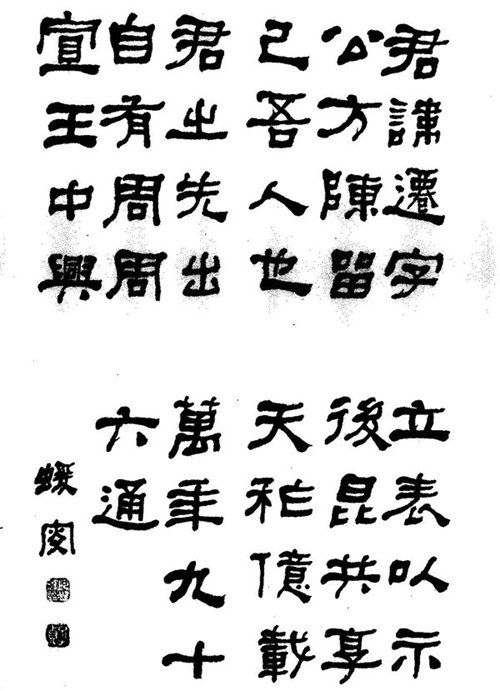 君諱遷字
公方陳留
己吾人也
君之先出
自有周周
宣王中興
立表以示
後昆共享
天秨億載
萬年九十
六通
蝯叟